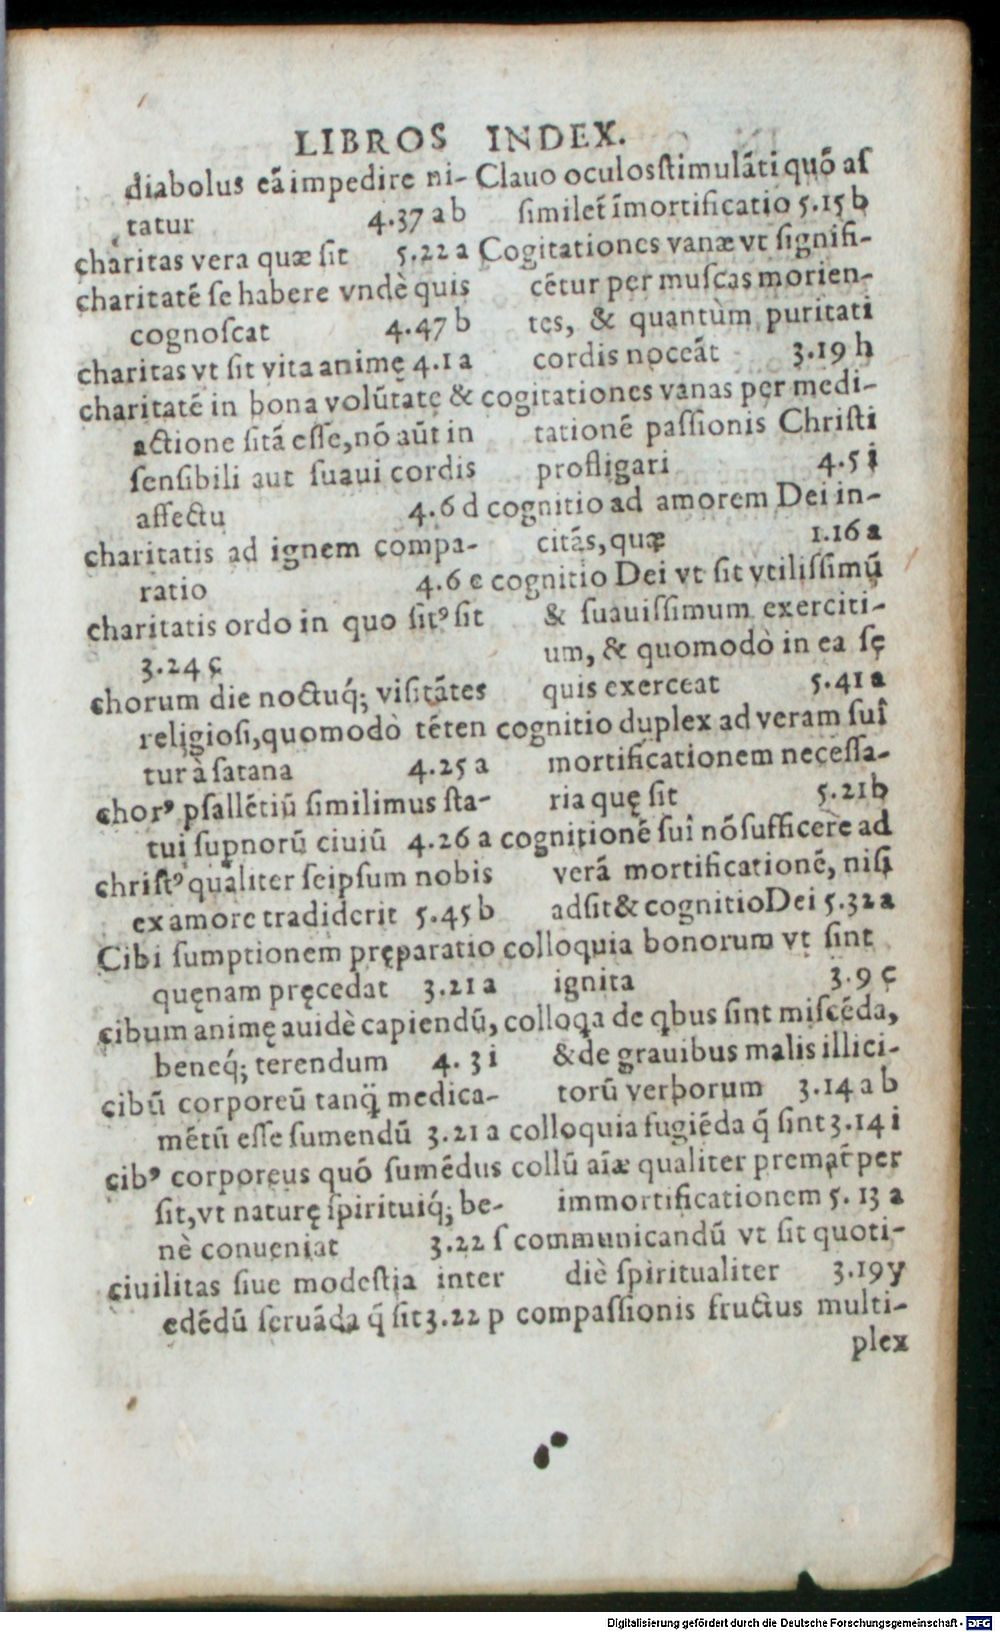 LIBROS INDEX.
diabolus eā impedire ni-
tatur 4.37 a b
charitas vera quæ sit 5.22 a
charitatē se habere vndè quis
cognoſcat 4.47 b
charitas vt ſit vita animę 4.1 a
charitatē in bona volūtate &
actione ſitā eſſe, nō aūt in
ſenſibili aut ſuaui cordis
affectu 4.6 d
charitatis ad ignem compa-
ratio 4.6 e
charitatis ordo in quo ſitꝰ ſit
3.24 c
chorum die noctuq́; viſitātes
religioſi, quomodò tēten
tur à ſatana 4.25 a
chorꝰ pſallētiū ſimilimus ſta-
tui ſupnorū ciuiū 4.26 a
chriſtꝰ qualiter ſeipſum nobis
ex amore tradiderit 5.45 b
Cibi ſumptionem pręparatio
quęnam pręcedat 3.21 a
cibum animę auidè capiendū,
beneq́; terendum 4. 3 i
cibū corporeū tanq̈ medica-
mētū eſſe ſumendū 3.21 a
cibꝰ corporeus quō ſumēdus
ſit, vt naturę ſpirituiq́; be-
nè conueniat 3.22 ſ
ciuilitas ſiue modeſtia inter
edēdū ſeruāda q̄ ſit 3.22 p
Clauo oculos ſtimulāti quō aſ
ſimilet̄ īmortificatio 5.15 b
Cogitationes vanæ vt ſignifi-
cētur per muſcas morien-
tes, & quantùm puritati
cordis noceāt 3.19 h
cogitationes vanas per medi-
tationē paſſionis Chriſti
profligari 4.5 i
cognitio ad amorem Dei in-
citās, quæ 1.16 a
cognitio Dei vt ſit vtiliſſimū
& ſuauiſſimum exerciti-
um, & quomodò in ea ſe
quis exerceat 5.41 a
cognitio duplex ad veram ſuî
mortificationem neceſſa-
ria quę ſit 5.21 b
cognitionē ſuî nō ſufficere ad
verā mortificationē, niſi
adſit & cognitio Dei 5.32 a
colloquia bonorum vt ſint
ignita 3.9 c
colloqa de qbus ſint miſcēda,
& de grauibus malis illici-
torū verborum 3.14 a b
colloquia fugiēda q̄ ſint 3.14 i
collū aīæ qualiter premat̄ per
immortificationem 5. 13 a
communicandū vt ſit quoti-
diè ſpiritualiter 3.19 y
compaſſionis fructus multi-
plex
Digitalisierung gefördert durch die Deutsche Forschungsgemeinschaft - DFG